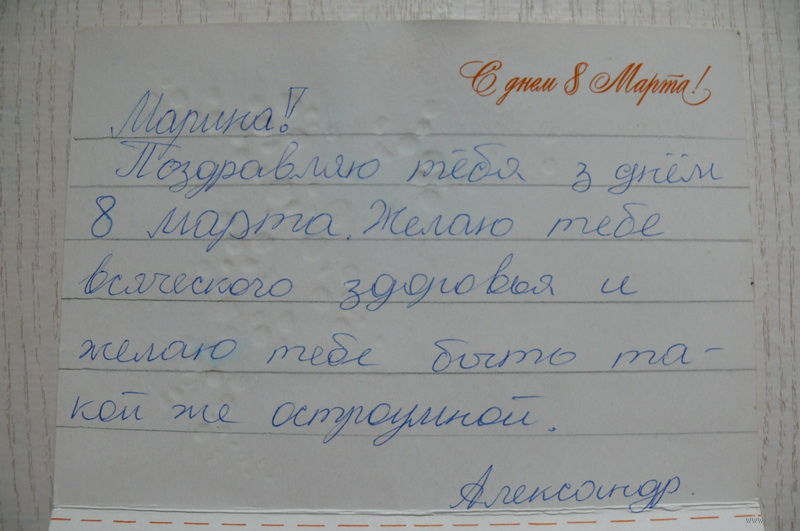 С днем 8 Марта!
Марина!
Поздравляю тёбя з днём
8 марта. Желаю тебе
всяческого здоровья и
желаю тебе быть та-
кой же остроумной.
Александр.
www